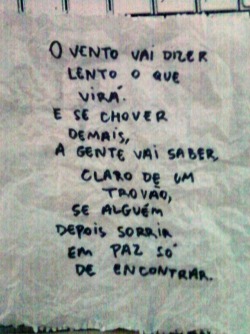 O VENTO VAI DIZER
LENTO O QUE
VIRÁ.
E SE CHOVER
DEMAIS,
A GENTE VAI SABER.
CLARO DE UM
TROVÃO,
SE ALGUÉM
DEPOIS SORRIR
EM PAZ SÓ
DE ENCONTRAR.